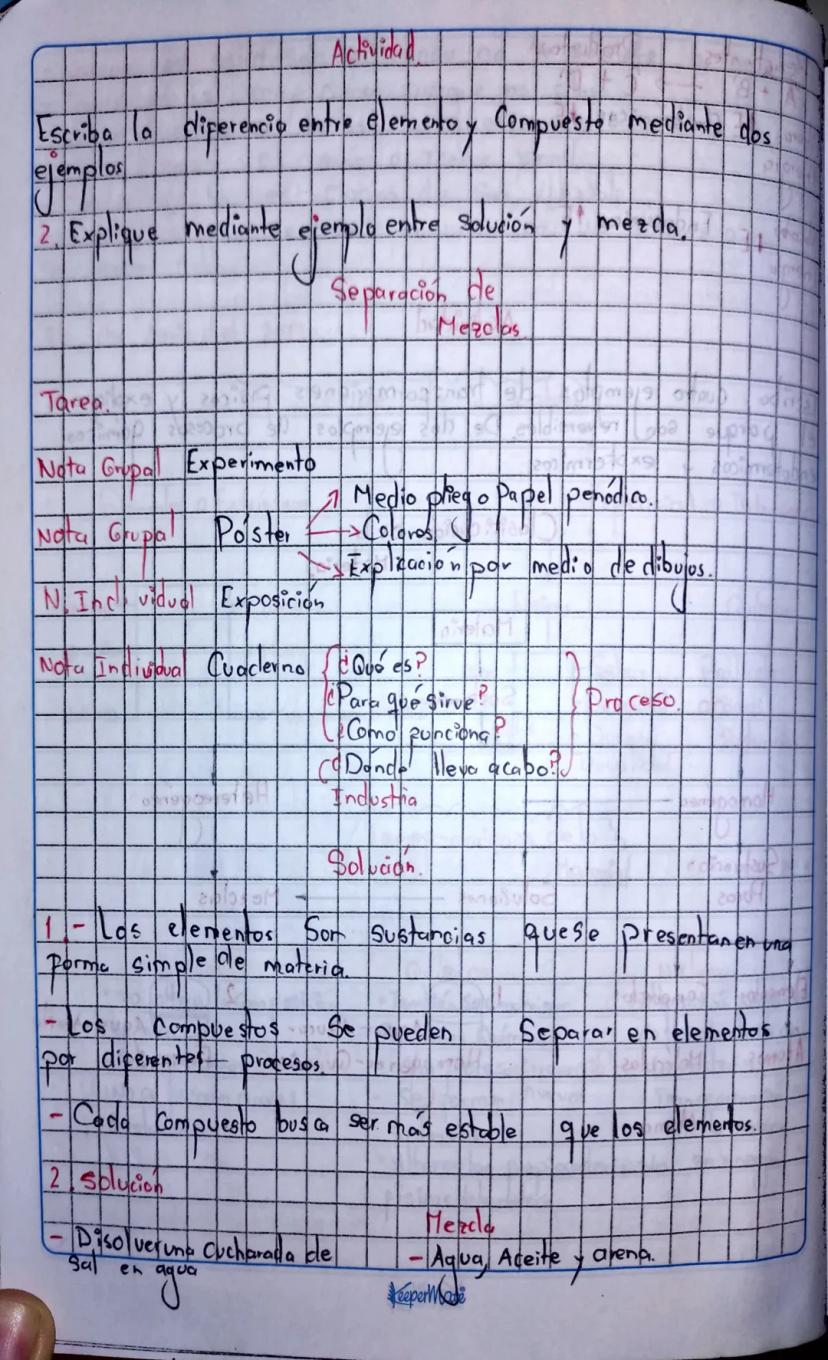 Actividad.
Escriba la diferencia entre elemento y Compuesto mediante dos
ejemplos
2. Explique mediante ejemplo entre solución y mezcla.
Separación de
Mezclas
Tarea.
Nota Grupal Experimento
Nota Grupal Póster → Medio pliego Papel periódico.
→ Colores
→ Explicación por medio de dibujos.
N. Individual Exposición
Nota Individual Cuaderno ¿Qué es?
¿Para qué sirve? Proceso.
¿Como funciona?
¿Dónde lleva acabo?
Industria
Solución.
1.- Los elementos Son sustancias que se presentan en una
forma simple de materia.
- Los compuestos Se pueden Separar en elementos
por diferentes procesos.
- Cada compuesto busca ser más estable que los elementos.
2. solución
Mezcla
- Disolver una cucharada de
sal en agua
- Agua, Aceite y arena.
KeeperMate